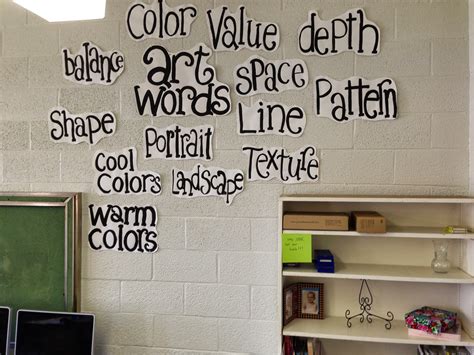 Color
Value
depth
balance
art
words
space
Pattern
Shape
Line
Portrait
Cool
Colors
Landscape
Texture
warm
colors